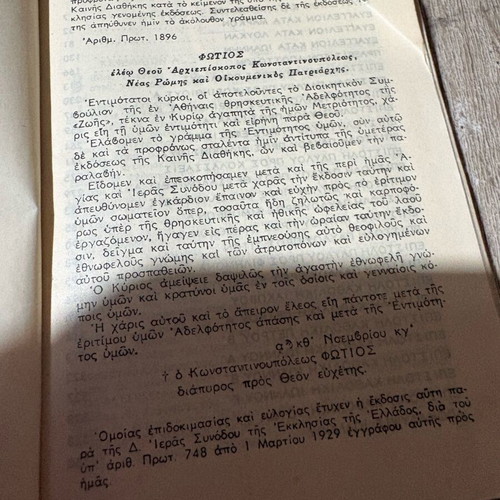 Καινῆς Διαθήκης κατὰ τὸ κείμενον τῆς ὑπὸ τῆς
κλησίας γενομένης ἐκδόσεως. Συντελεσθείσης δὲ τῆς ἐκδόσεως
της ἀπηύθυνεν ἡμῖν τὸ ἀκόλουθον γράμμα.
Ἀριθμ. Πρωτ. 1896
ΦΩΤΙΟΣ
ἐλέῳ Θεοῦ Ἀρχιεπίσκοπος Κωνσταντινουπόλεως,
Νέας Ρώμης καὶ Οἰκουμενικὸς Πατριάρχης.
Ἐντιμότατοι κύριοι, οἱ ἀποτελοῦντες τὸ Διοικητικὸν Συμ-
βούλιον τῆς ἐν Ἀθήναις θρησκευτικῆς Ἀδελφότητος τῆς
«Ζωῆς», τέκνα ἐν Κυρίῳ ἀγαπητὰ τῆς ἡμῶν Μετριότητος, χά-
ρις εἴη τῇ ὑμῶν ἐντιμότητι καὶ εἰρήνη παρὰ Θεοῦ.
Ἐλάβομεν τὸ γράμμα τῆς Ἐντιμότητος ὑμῶν, σὺν αὐτῷ
δὲ καὶ τὰ προφρόνως σταλέντα ἡμῖν ἀντίτυπα τῆς ὑμετέρας
ἐκδόσεως τῆς Καινῆς Διαθήκης, ὧν καὶ βεβαιοῦμεν τὴν πα-
ραλαβήν.
Εἴδομεν καὶ ἐπεσκοπήσαμεν μετὰ καὶ τῆς περὶ ἡμᾶς Ἁ-
γίας καὶ Ἱερᾶς Συνόδου μετὰ χαρᾶς τὴν ἔκδοσιν ταύτην καὶ
ἀπευθύνομεν ἐγκάρδιον ἔπαινον καὶ εὐχὴν πρὸς τὸ ἐρίτιμον
ὑμῶν σωματεῖον ὅπερ, τοσαῦτα ἤδη ζηλωτῶς καὶ καρποφό-
ρως ὑπὲρ τῆς θρησκευτικῆς καὶ ἠθικῆς ὠφελείας τοῦ λαοῦ
ἐργαζόμενον, ἤγαγεν εἰς πέρας καὶ τὴν ὡραίαν ταύτην ἔκδο-
σιν, δεῖγμα καὶ ταύτην τῆς ἐμπνεούσης αὐτὸ θεοφιλοῦς καὶ
ἐθνωφελοῦς γνώμης καὶ τῶν ἀτρυπόνων καὶ εὐλογημένων
αὐτοῦ προσπαθειῶν.
Ὁ Κύριος ἀμείψειε δαψιλῶς τὴν ἀγαστὴν ἐθνωφελῆ γνώ-
μην ὑμῶν καὶ κρατύνοι ὑμᾶς ἐν τοῖς ὁσίοις καὶ γενναίοις κό-
ποις ὑμῶν.
Ἡ χάρις αὐτοῦ καὶ τὸ ἄπειρον ἔλεος εἴη πάντοτε μετὰ τῆς
ἐριτίμου ὑμῶν Ἀδελφότητος ἁπάσης καὶ μετὰ τῆς Ἐντιμότη-
τος ὑμῶν.
αϠκθ' Νοεμβρίου κγ'
† ὁ Κωνσταντινουπόλεως ΦΩΤΙΟΣ
διάπυρος πρὸς Θεὸν εὐχέτης.
Ὁμοίας ἐπιδοκιμασίας καὶ εὐλογίας ἔτυχεν ἡ ἔκδοσις αὕτη πα-
ρὰ τῆς Δ. Ἱερᾶς Συνόδου τῆς Ἐκκλησίας τῆς Ἑλλάδος, διὰ τοῦ
ὑπ' ἀριθ. Πρωτ. 748 ἀπὸ 1 Μαρτίου 1929 ἐγγράφου αὐτῆς πρὸς
ἡμᾶς.